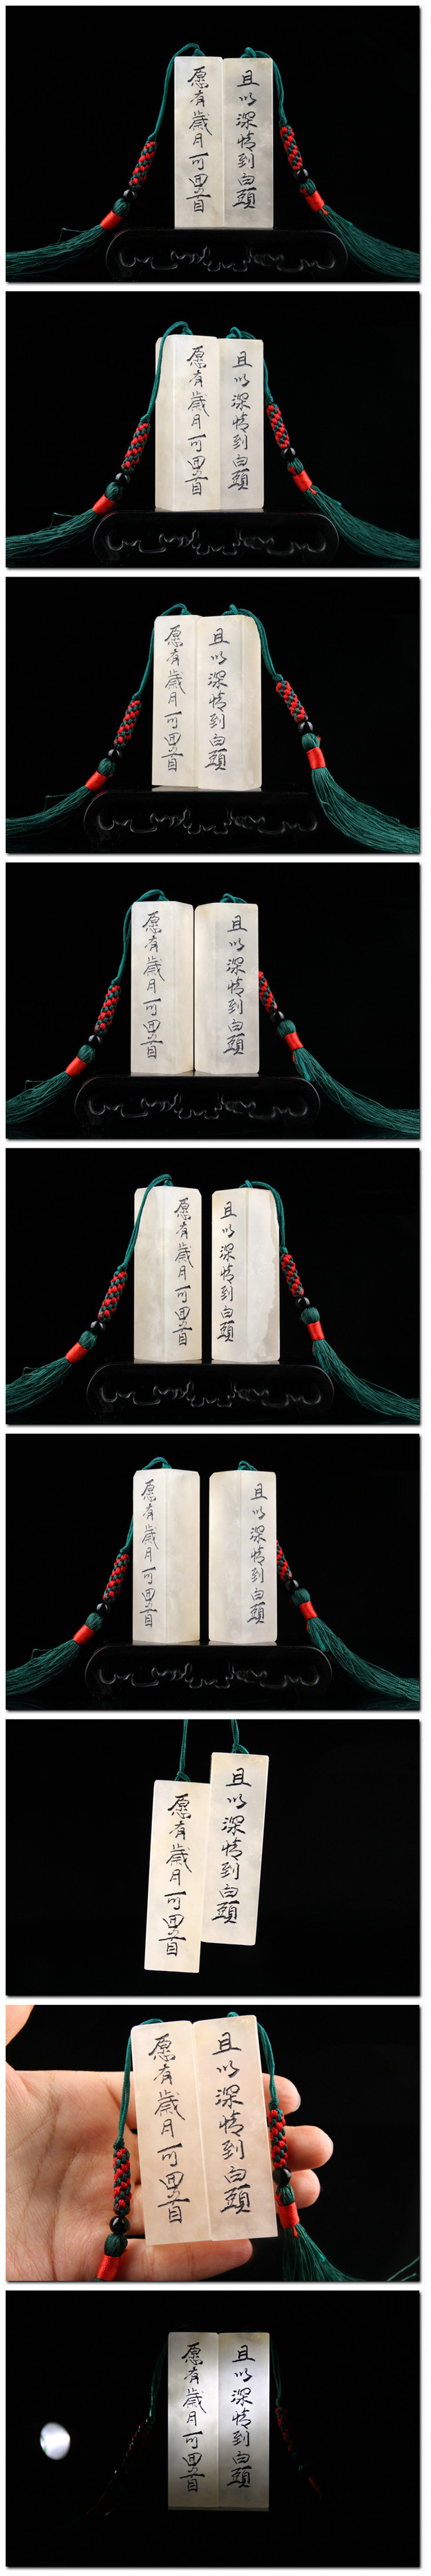 愿有歲月可回首
且以深情到白頭
愿有歲月可回首
且以深情到白頭
愿有歲月可回首
且以深情到白頭
愿有歲月可回首
且以深情到白頭
愿有歲月可回首
且以深情到白頭
愿有歲月可回首
且以深情到白頭
愿有歲月可回首
且以深情到白頭
愿有歲月可回首
且以深情到白頭
愿有歲月可回首
且以深情到白頭